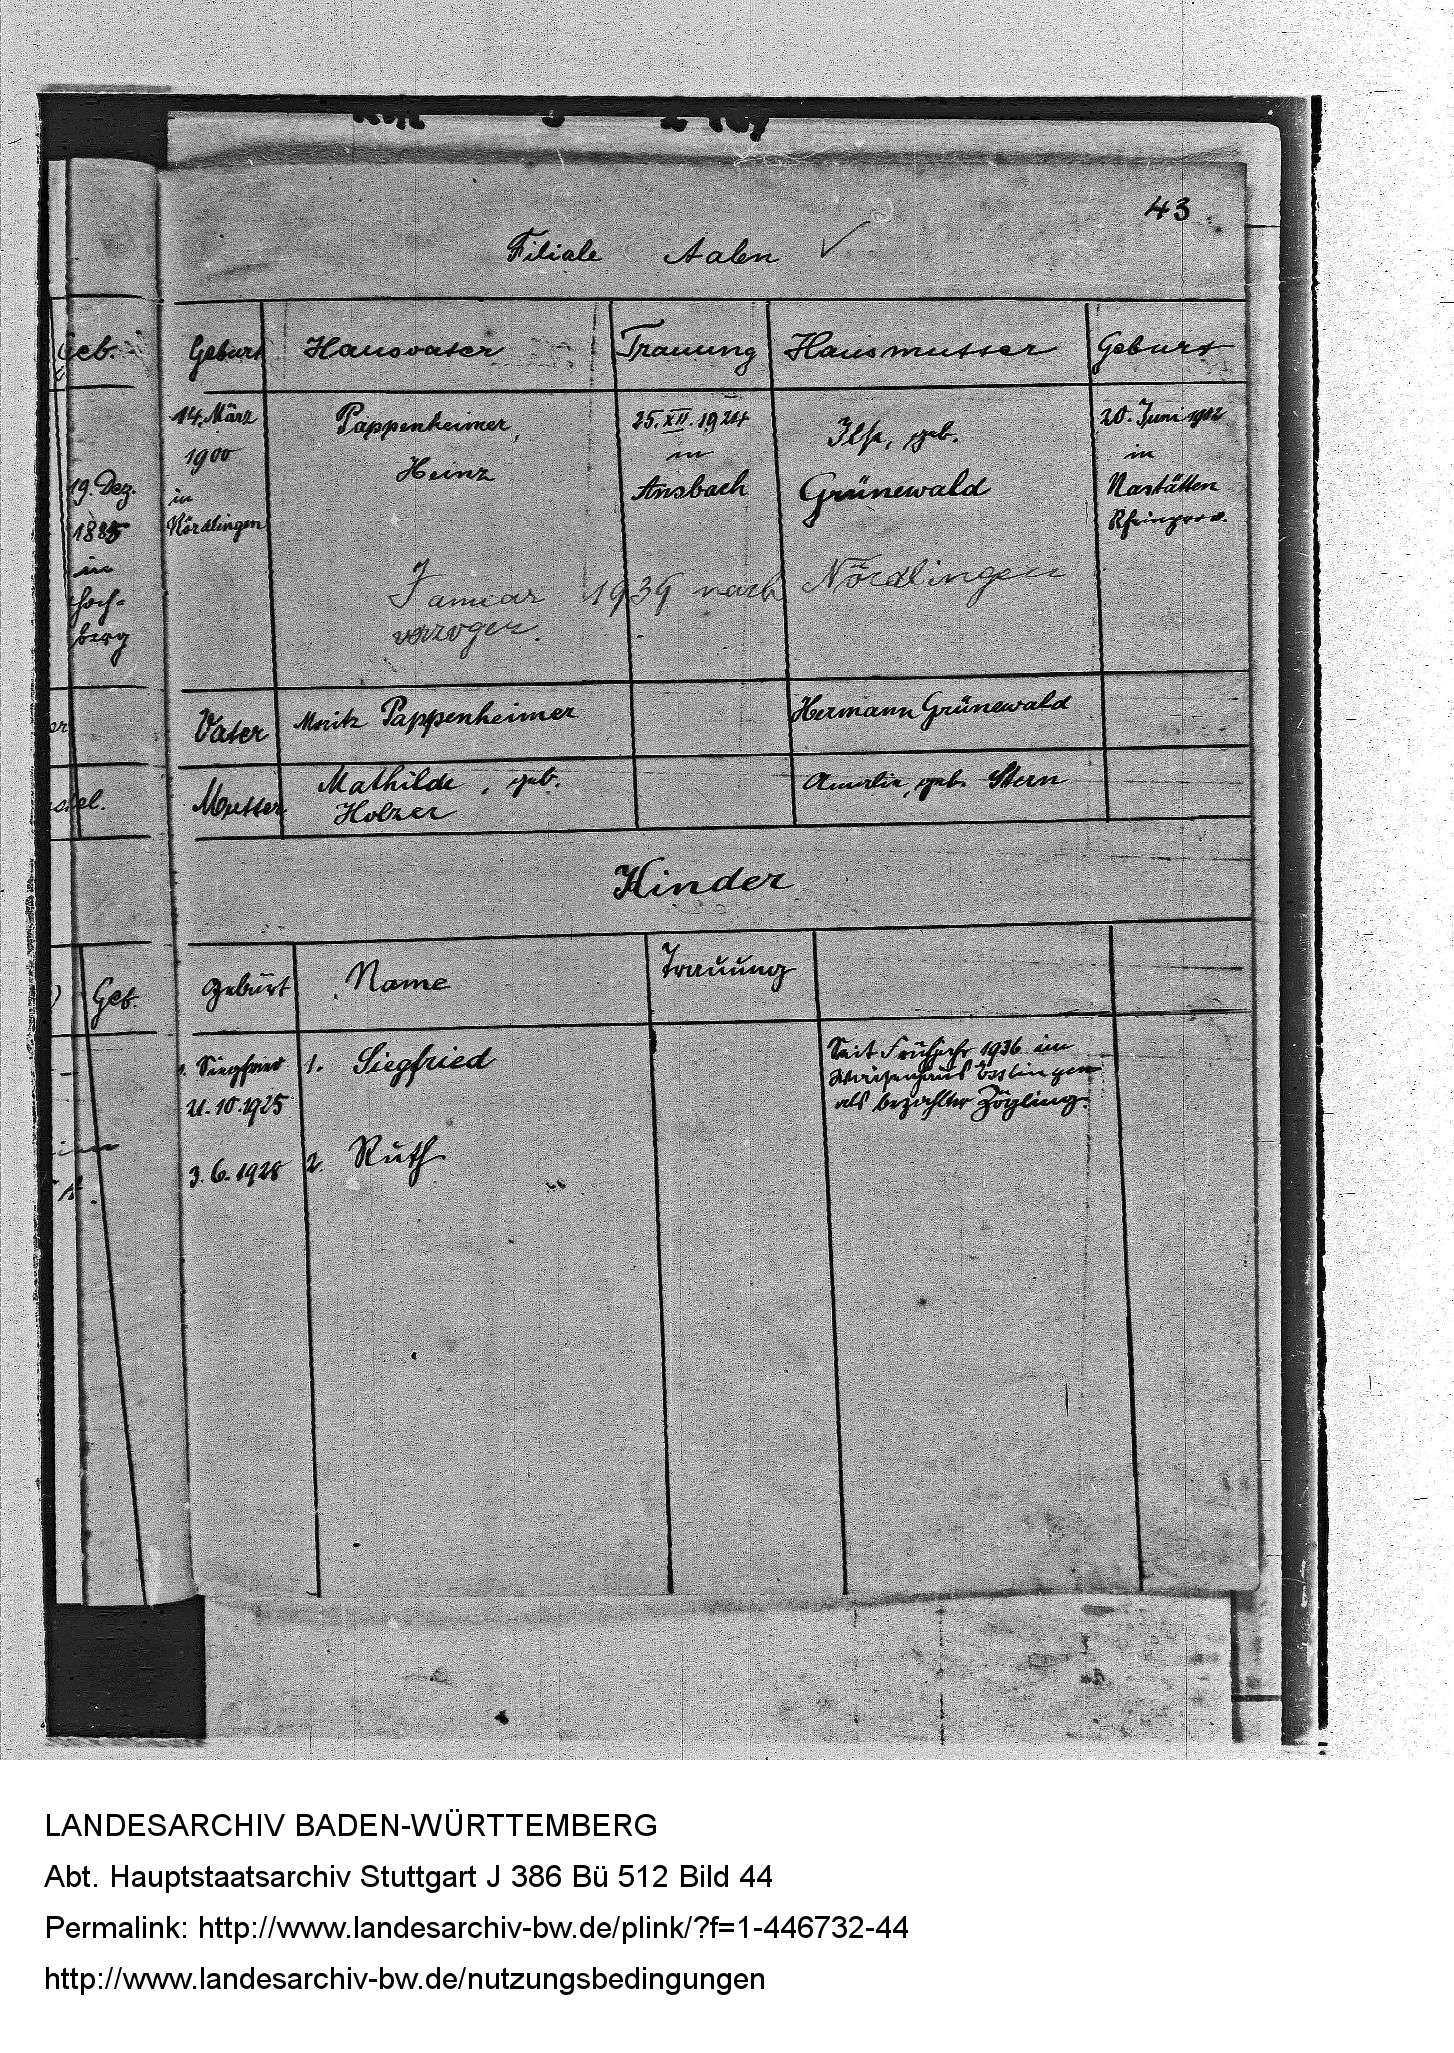 43
Filiale Aalen
Geb.
Geburt Hausvater Trauung Hausmutter Geburt
14. März
1900
in
Nördlingen
Pappenheimer,
Heinz
25. XII. 1924
in
Ansbach
Ilse, geb.
Grünewald
20. Juni 1902
in
Nastätten
Rheinprov.
19. Dez.
in
hoch-
berg
Januar 1939 nach Nördlingen
verzogen.
Vater Moritz Pappenheimer Hermann Grünewald
Mutter Mathilde, geb.
Holzer
Amalie, geb. Stern
Kinder
Geb.
Geburt Name Trauung
1. Siegfried
10.1925
1. Siegfried
Seit Frühjahr 1936 im
Waisenhaus Esslingen
als bezahlter Zögling.
3. 6. 1928 2. Ruth
LANDESARCHIV BADEN-WÜRTTEMBERG
Abt. Hauptstaatsarchiv Stuttgart J 386 Bü 512 Bild 44
Permalink: http://www.landesarchiv-bw.de/plink/?f=1-446732-44
http://www.landesarchiv-bw.de/nutzungsbedingungen